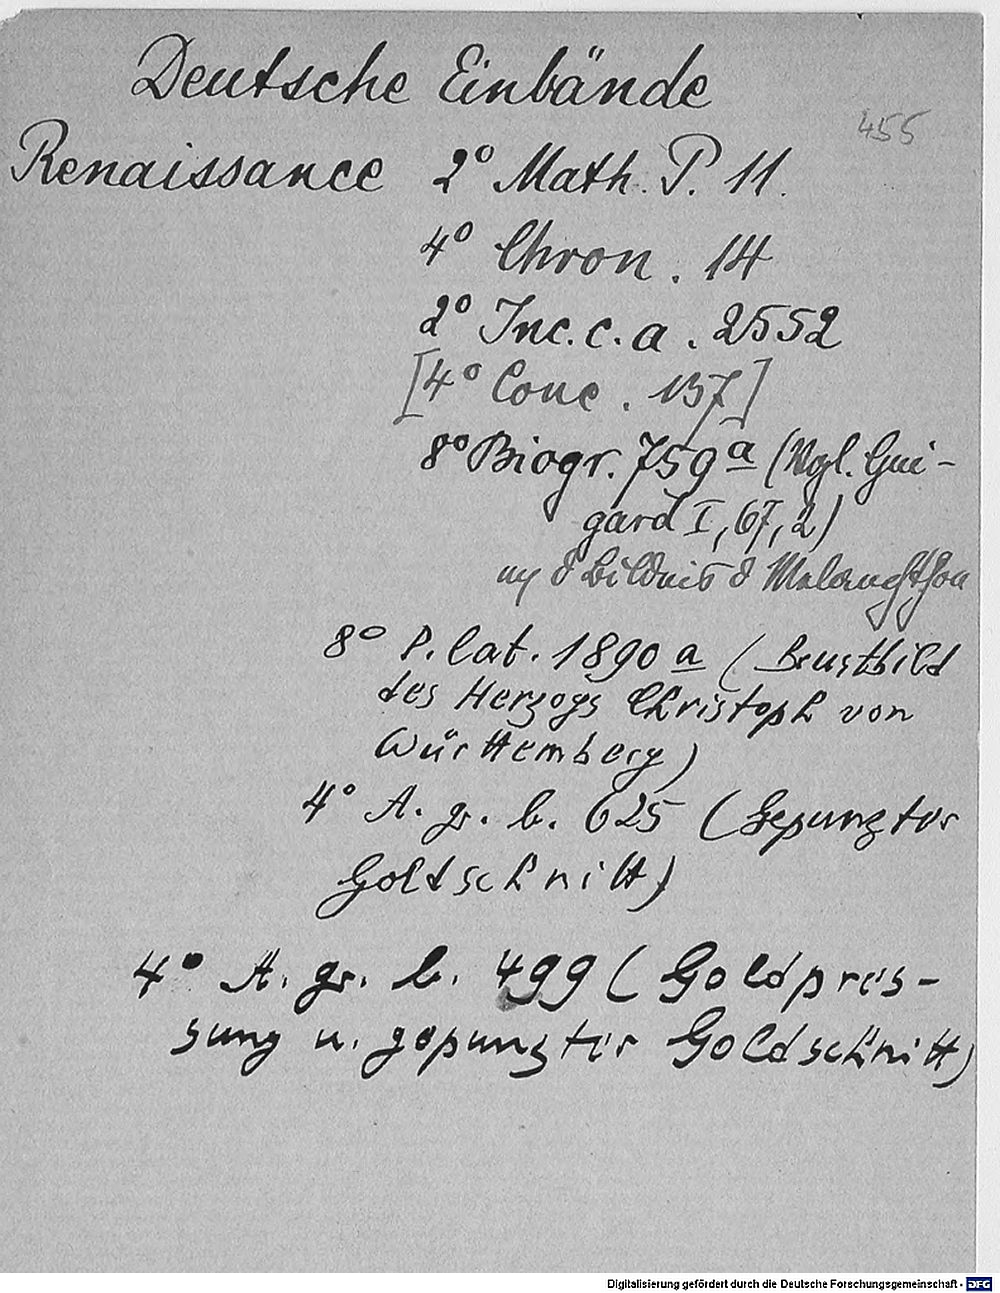 Deutsche Einbände
455
Renaissance 2° Math. P. 11.
4° Chron. 14
2° Inc. c. a. 2552
[4° Conc. 137]
8° Biogr. 759 a (Vgl. Gui-
gard I, 67, 2)
Bildnis d Melanchthon
8° P. lat. 1890 a (Brustbild
des Herzogs Christoph von
Württemberg)
4° A. gr. b. 625 (Gepunzter
Goldschnitt)
4° A. gr. b. 499 (Goldpres-
sung u. gepunzter Goldschnitt)
Digitalisierung gefördert durch die Deutsche Forschungsgemeinschaft - DFG